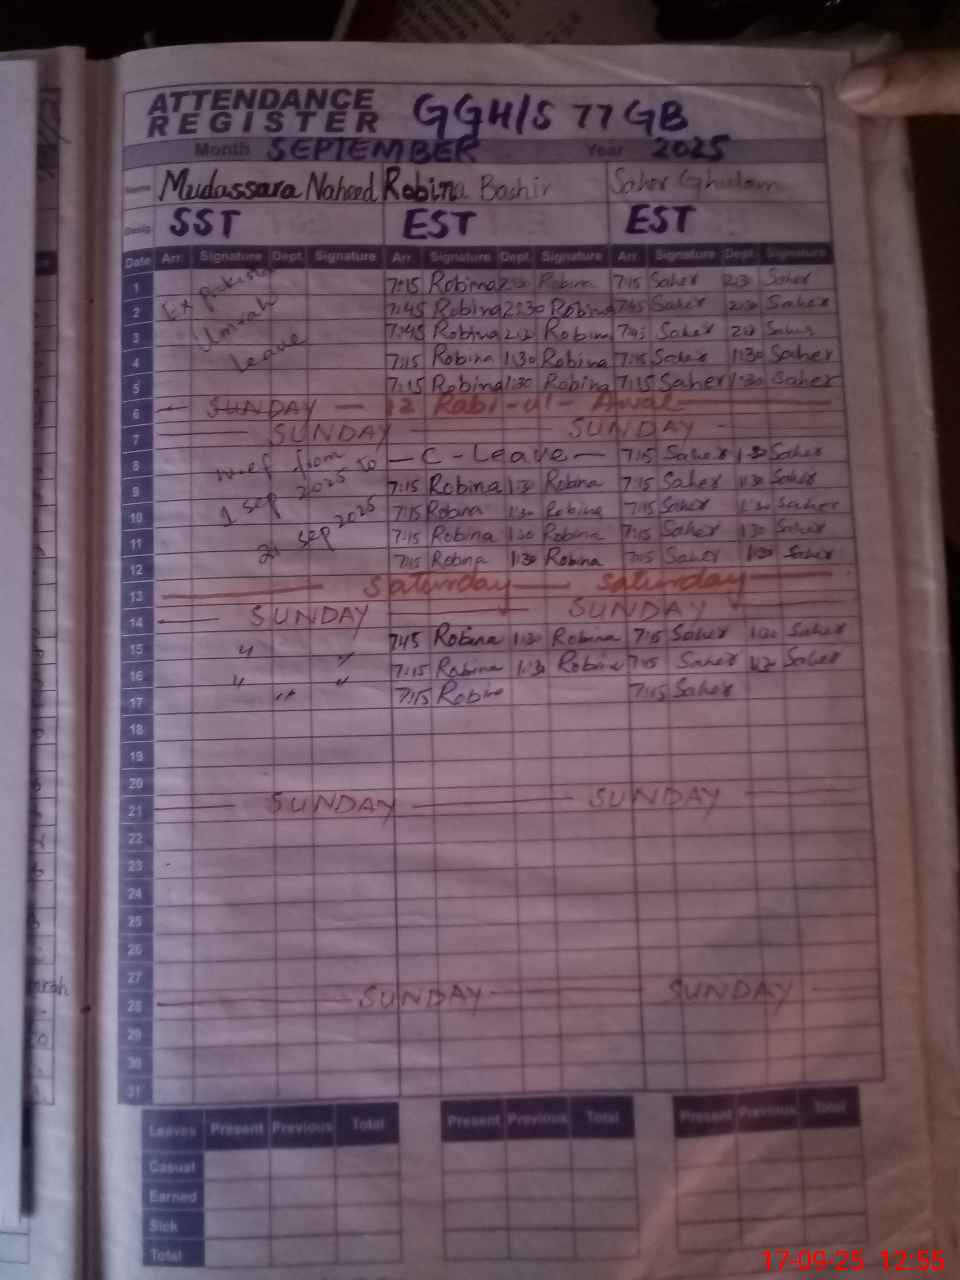 ATTENDANCE
REGISTER
GGH/S 77 GB
Month SEPTEMBER Year 2025
Name Mudassara Naheed Robina Bashir Saher Ghulam
Desig. SST EST EST
Date Arr. Signature Dept. Signature Arr. Signature Dept. Signature Arr. Signature Dept. Signature
1 Ex Pakistan 7:15 Robina Robina 7:15 Saher 2:30 Saher
2 Umrah 7:45 Robina 2:30 Robina 7:45 Saher 2:30 Saher
3 Leave 7:45 Robina Robina 7:45 Saher Saher
4 7:15 Robina 1:30 Robina 7:15 Saher 1:30 Saher
5 7:15 Robina 1:30 Robina 7:15 Saher 1:30 Saher
6 SUNDAY — 12 Rabi-ul-Awal
7 SUNDAY SUNDAY
8 from — C - Leave — 7:15 Saher 1:30 Saher
9 1 sep 2025 to 7:15 Robina 1:30 Robina 7:15 Saher 1:30 Saher
10 7:15 Robina 1:30 Robina 7:15 Saher 1:30 Saher
11 21 sep 2025 7:15 Robina 1:30 Robina 7:15 Saher 1:30 Saher
12 7:15 Robina 1:30 Robina 7:15 Saher 1:30 Saher
13 Saturday — Saturday
14 SUNDAY SUNDAY
15 " " 7:45 Robina 1:30 Robina 7:15 Saher 1:30 Saher
16 " " 7:15 Robina 1:30 Robina 7:15 Saher Saher
17 " 7:15 Robina 7:15 Saher
18
19
20
21 SUNDAY SUNDAY
22
23
24
25
26
27
28 SUNDAY SUNDAY
29
30
31
Leaves Present Previous Total Present Previous Total Present Previous Total
Casual
Earned
Sick
Total
17-09-25 12:55